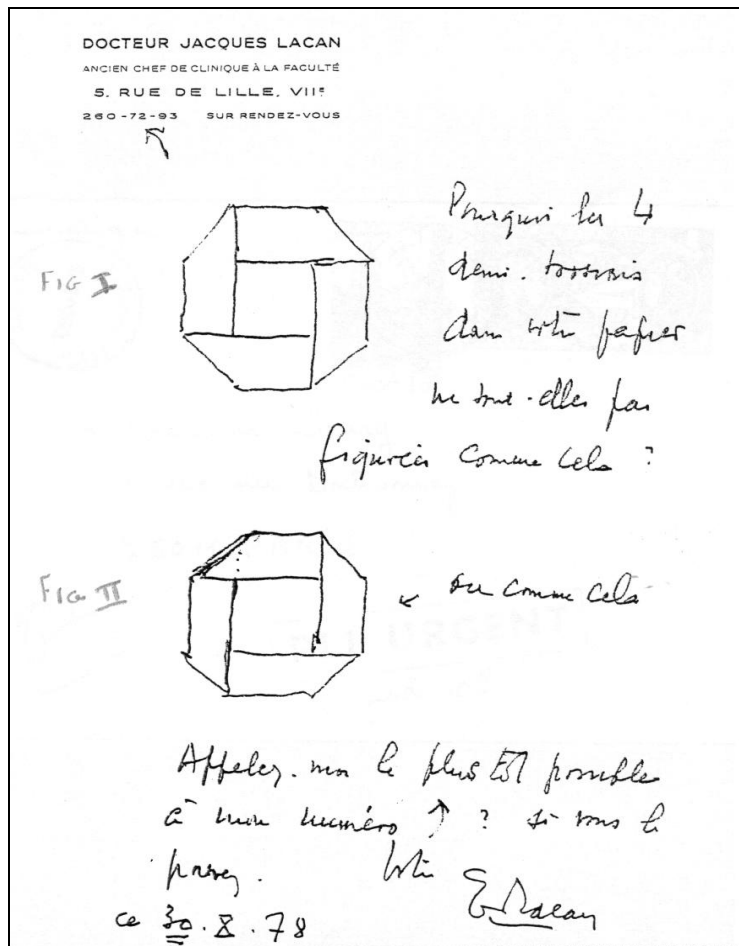 DOCTEUR JACQUES LACAN
ANCIEN CHEF DE CLINIQUE À LA FACULTÉ
5. RUE DE LILLE, VIIe
260-72-93 SUR RENDEZ-VOUS
Pourquoi les 4
FIG I
demi-torsions
dans votre papier
ne sont-elles pas
figurées comme cela ?
FIG II
ou comme cela
URGENT
Appelez-moi le plus tôt possible
à mon numéro ↑ ? si vous le
pouvez.
Votre
J. Lacan
ce 30.X.78